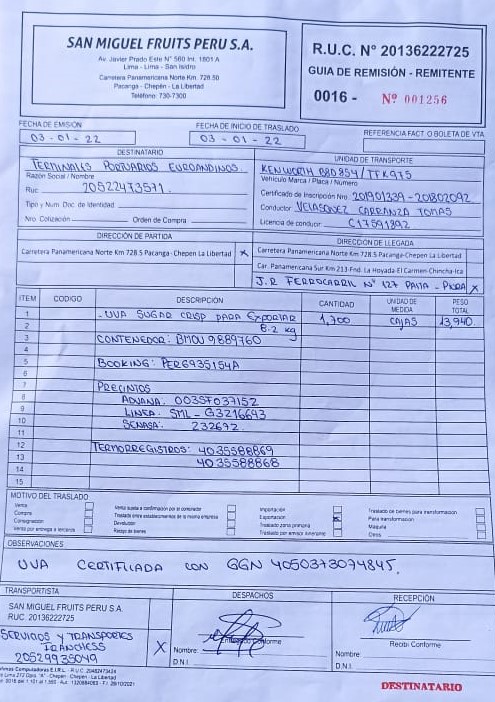 SAN MIGUEL FRUITS PERU S.A.
Av. Javier Prado Este N° 560 Int. 1801 A
Lima - Lima - San Isidro
Carretera Panamericana Norte Km. 728.50
Pacanga - Chepén - La Libertad
Teléfono: 730-7300
R.U.C. N° 20136222725
GUIA DE REMISIÓN - REMITENTE
0016 - Nº 001256
FECHA DE EMISIÓN
03-01-22
FECHA DE INICIO DE TRASLADO
03-01-22
REFERENCIA FACT. O BOLETA DE VTA.
DESTINATARIO
TERMINALES PORTUARIOS EUROANDINOS
Razón Social / Nombre
Ruc 20522473571.
Tipo y Num. Doc. de Identidad
Nro. Cotización Orden de Compra
UNIDAD DE TRANSPORTE
KENWORTH 880854 / TFK975
Vehículo Marca / Placa / Numero
Certificado de Inscripción Nro. 201901339-201802092
Conductor VELASQUEZ CARRANZA TOMAS
Licencia de conducir C17591892
DIRECCIÓN DE PARTIDA
Carretera Panamericana Norte Km 728.5 Pacanga-Chepen La Libertad X
DIRECCIÓN DE LLEGADA
Carretera Panamericana Norte Km 728.5 Pacanga-Chepen La Libertad
Car. Panamericana Sur Km 213-Fnd. La Hoyada-El Carmen-Chincha-Ica
J.R FERROCARRIL N° 127 PAITA - PIURA X
ITEM CODIGO DESCRIPCIÓN CANTIDAD UNIDAD DE MEDIDA PESO TOTAL
1 - UVA SUGAR CRISP PARA EXPORTAR 1,700 CAJAS 13,940.
2 8.2 kg
3 CONTENEDOR: BMOU 9889760
4
5 BOOKING: PER6935154A
6
7 PRECINTOS
8 ADUANA: 0035F037152
9 LINEA: SML - G3216693
10 SENASA: 232672
11
12 TERMORREGISTROS: 4035588869
13 4035588868
14
15
MOTIVO DEL TRASLADO
Venta
Compra
Consignación
Venta por entrega a terceros
Venta sujeta a confirmación por el comprador
Traslado entre establecimientos de la misma empresa
Devolución
Recojo de bienes
Importación
Exportación X
Traslado zona primaria
Traslado por emisor itinerante
Traslado de bienes para transformacion
Para transformacion
Maquila
Otros
OBSERVACIONES
UVA CERTIFICADA CON GGN 4050373074845.
TRANSPORTISTA
SAN MIGUEL FRUITS PERU S.A.
RUC. 20136222725
SERVICIOS Y TRANSPORTES
FRANCHESS X
20529935049
DESPACHOS
Conforme
Nombre:
D.N.I.
RECEPCIÓN
Recibi Conforme
Nombre:
D.N.I.
DESTINATARIO